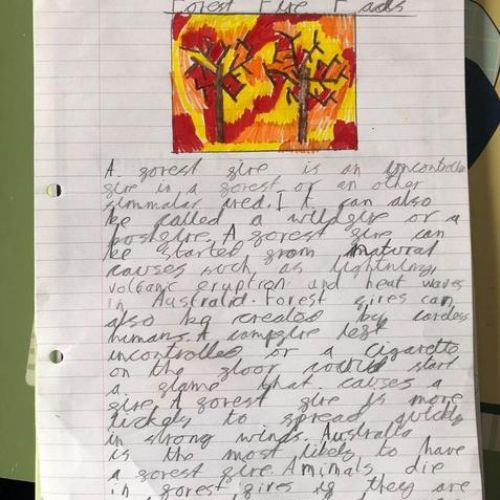 Forest Fire Facts
A forest fire is an uncontrolled
fire in a forest or an other
simmalar area. It can also
be called a wildfire or a
. A forest fire can
be started from natural
causes such as lightning,
volcanic eruption and heat waves
in Australia. Forest fires can
also be created by careless
humans. A campfire left
uncontrolled or a cigarette
on the floor could start
a flame that causes a
fire. A forest fire is more
likely to spread quickly
in strong winds. Australia
is the most likely to have
a forest fire. Animals die
in forest fires if they are